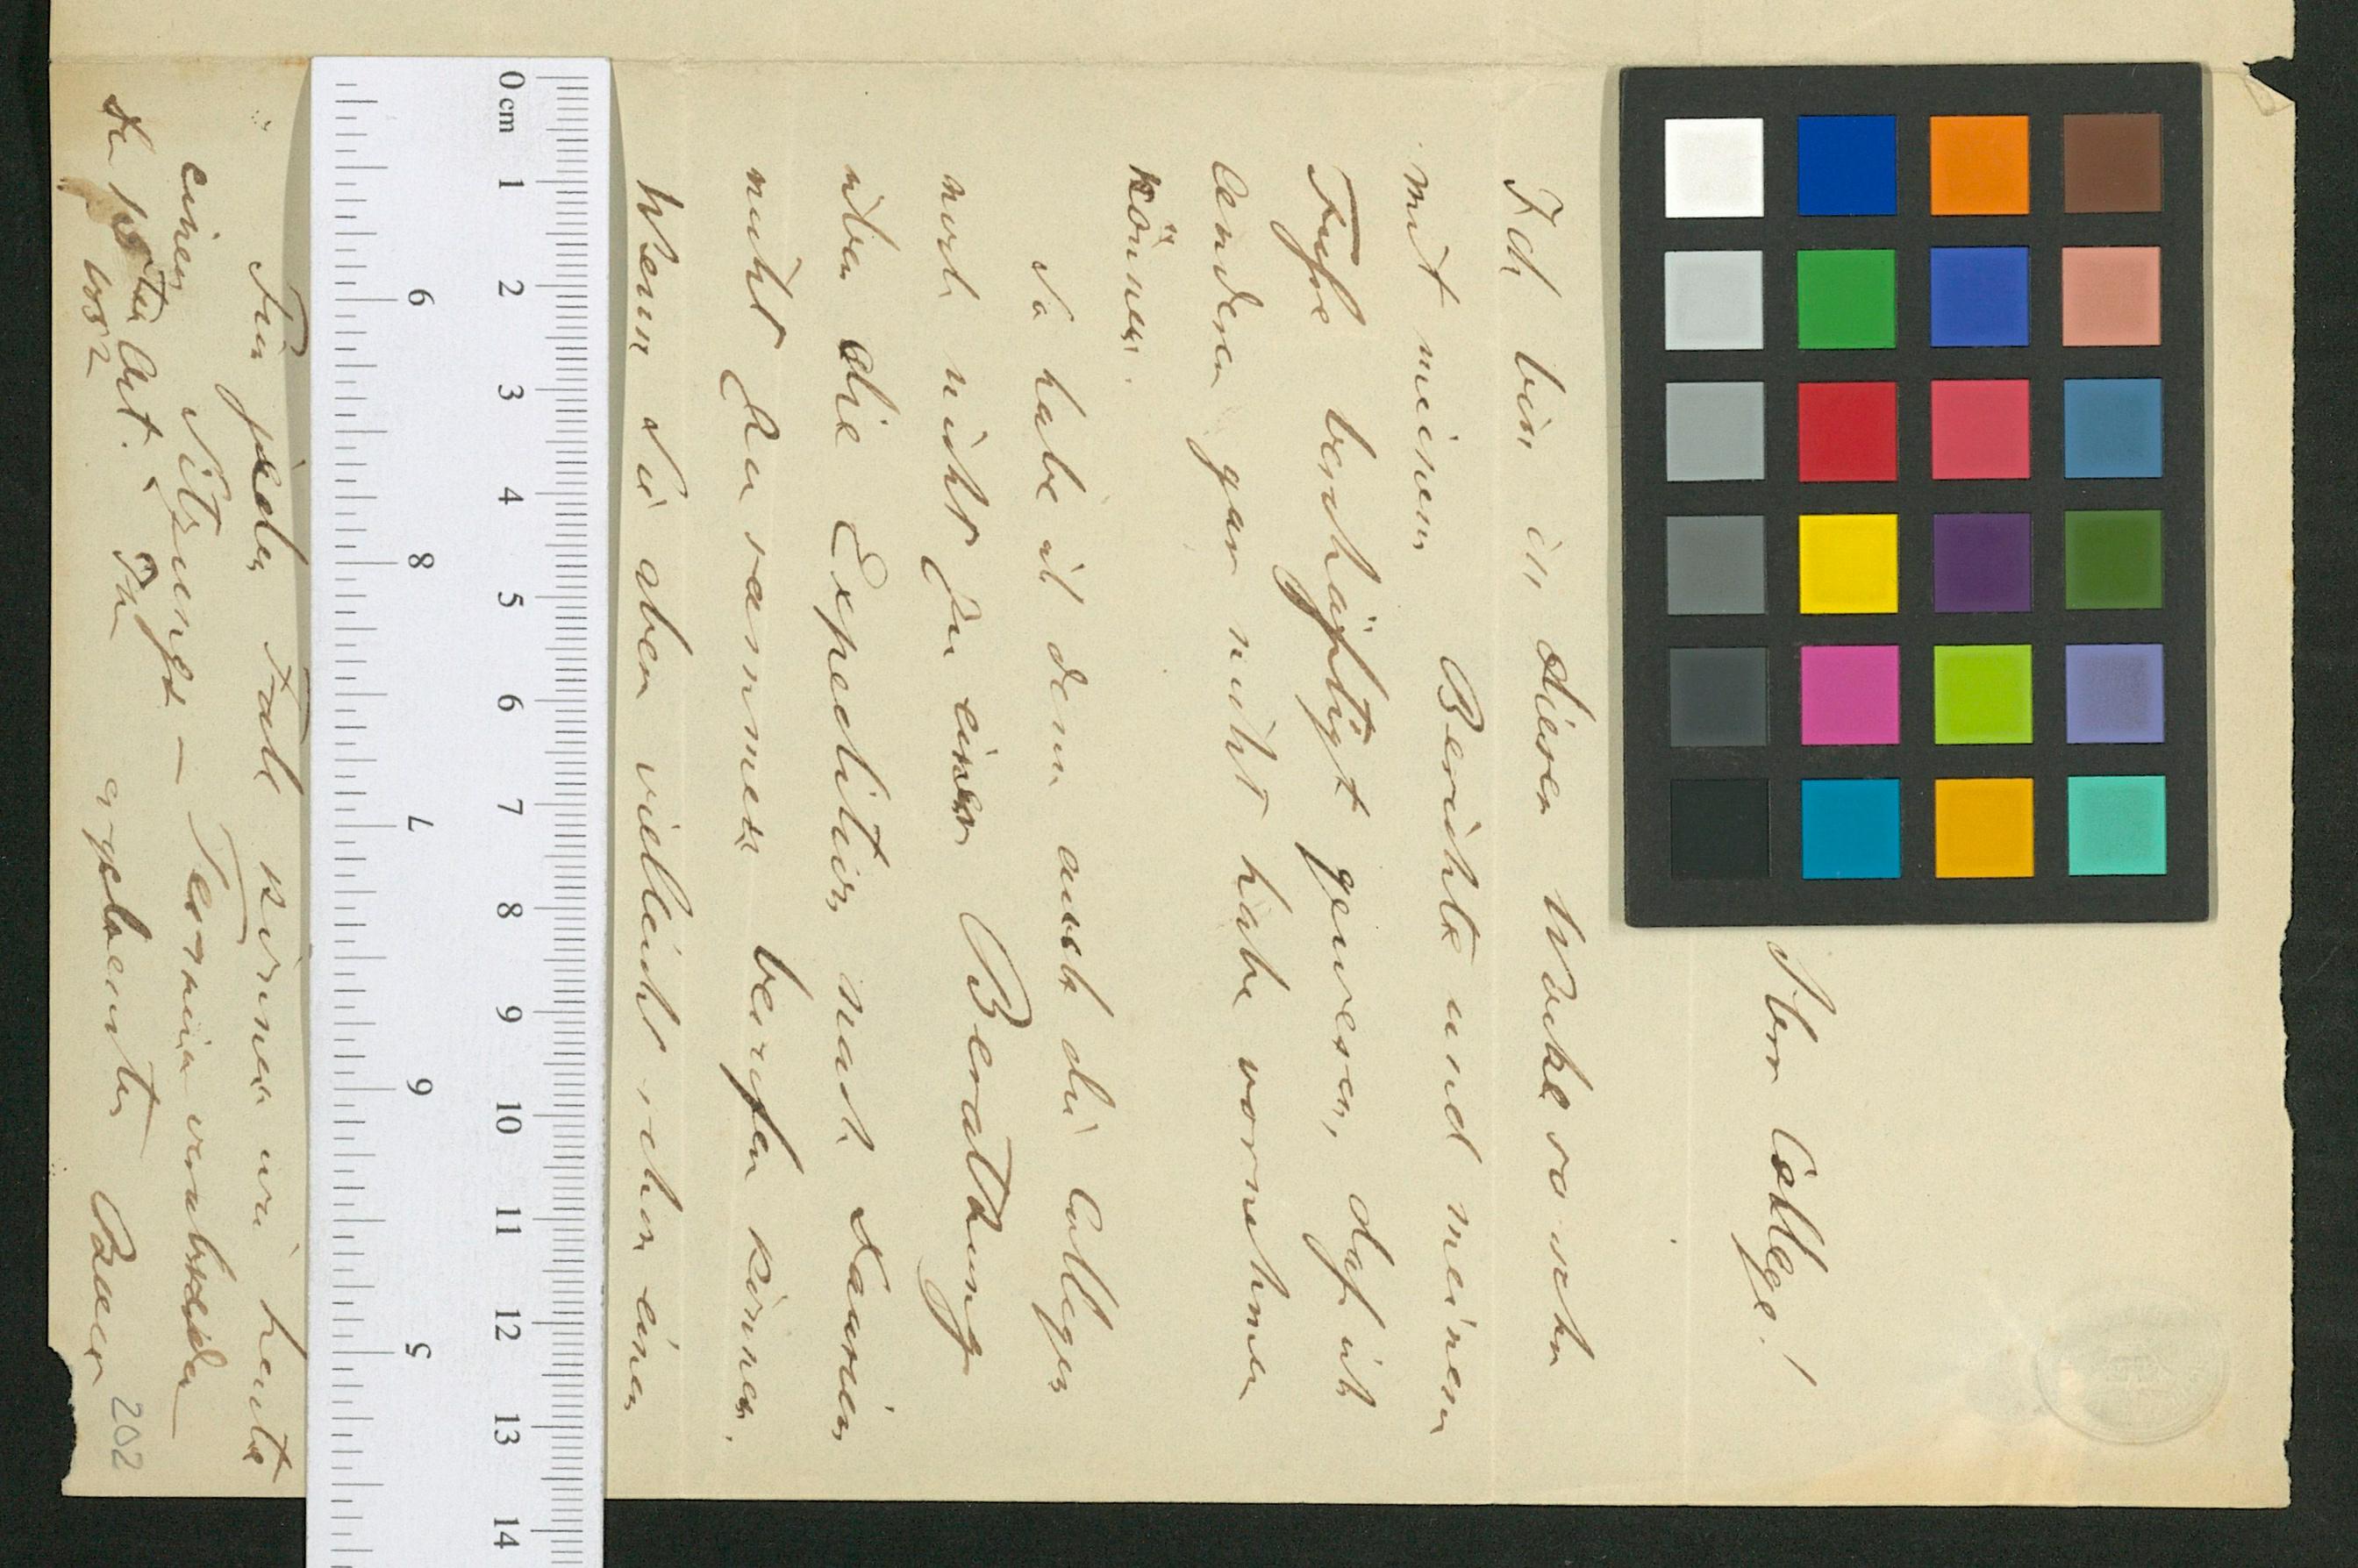 Herr College!
Ich bin in dieser Woche so sehr
mit meinem Berichte und meinem
Fusse beschäftigt gewesen, daß ich
anderen gar nicht habe vornehmen
können.
So habe ich denn auch die Collegen
noch nicht zu einer Berathung
über die Expedition nach
nicht zusammen berufen können.
Wenn Sie aber vielleicht schon einen
Für jeden Fall können wir heute
einen Sitzungs-Termin verabreden
Den Oct.
Ihr ergebenster Baeer
202
0 cm 1 2 3 4 5 6 7 8 9 10 11 12 13 14